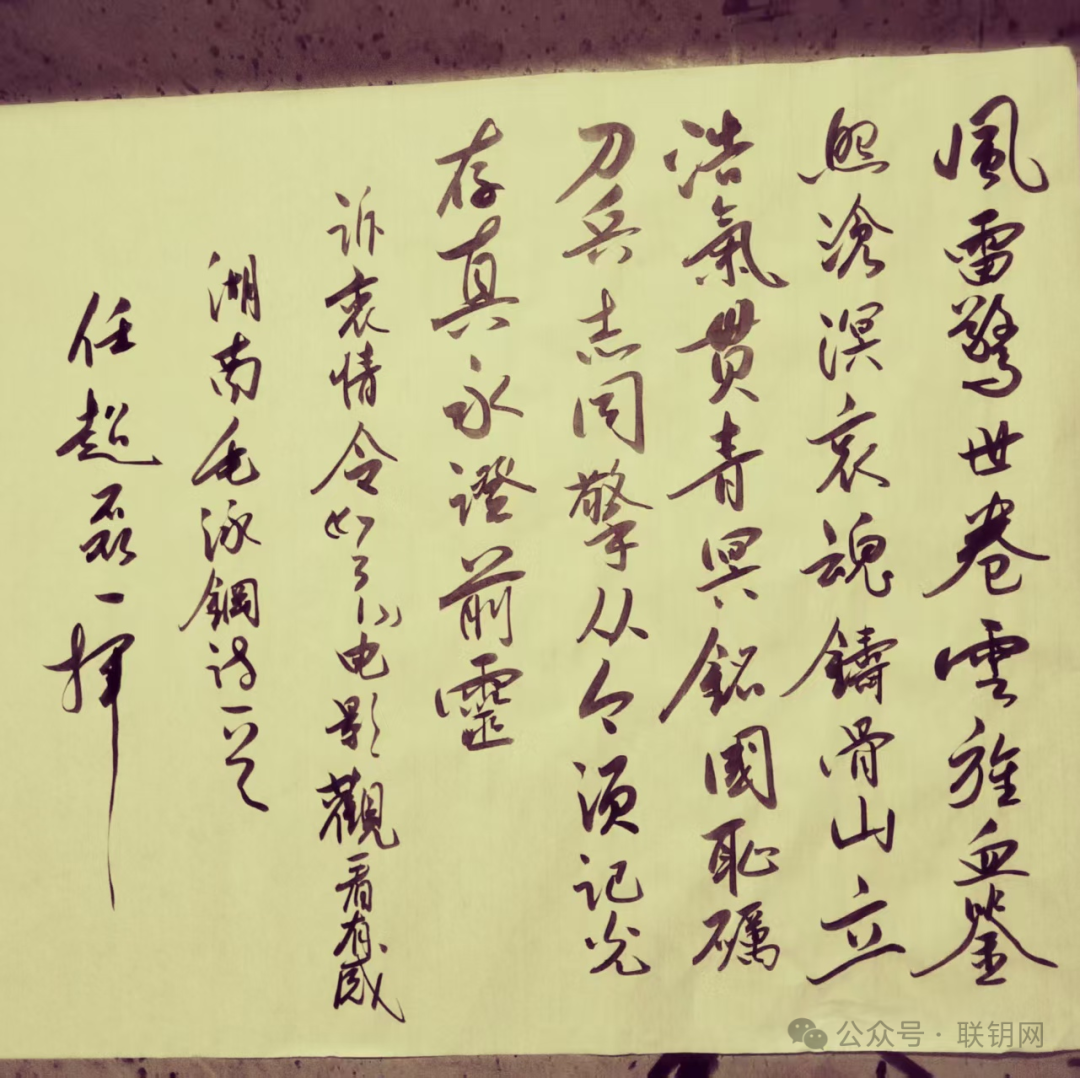 風雷驚世卷雲旌血鑒
照滄溟哀魂鑄骨山立
浩氣贯青冥銘國恥礪
刀兵志同擎从今须记光
存真永證前靈
诉衷情令《731》电影觀看有感
湖南毛泳鋼诗一首
任超磊一挥
公众号·联钥网